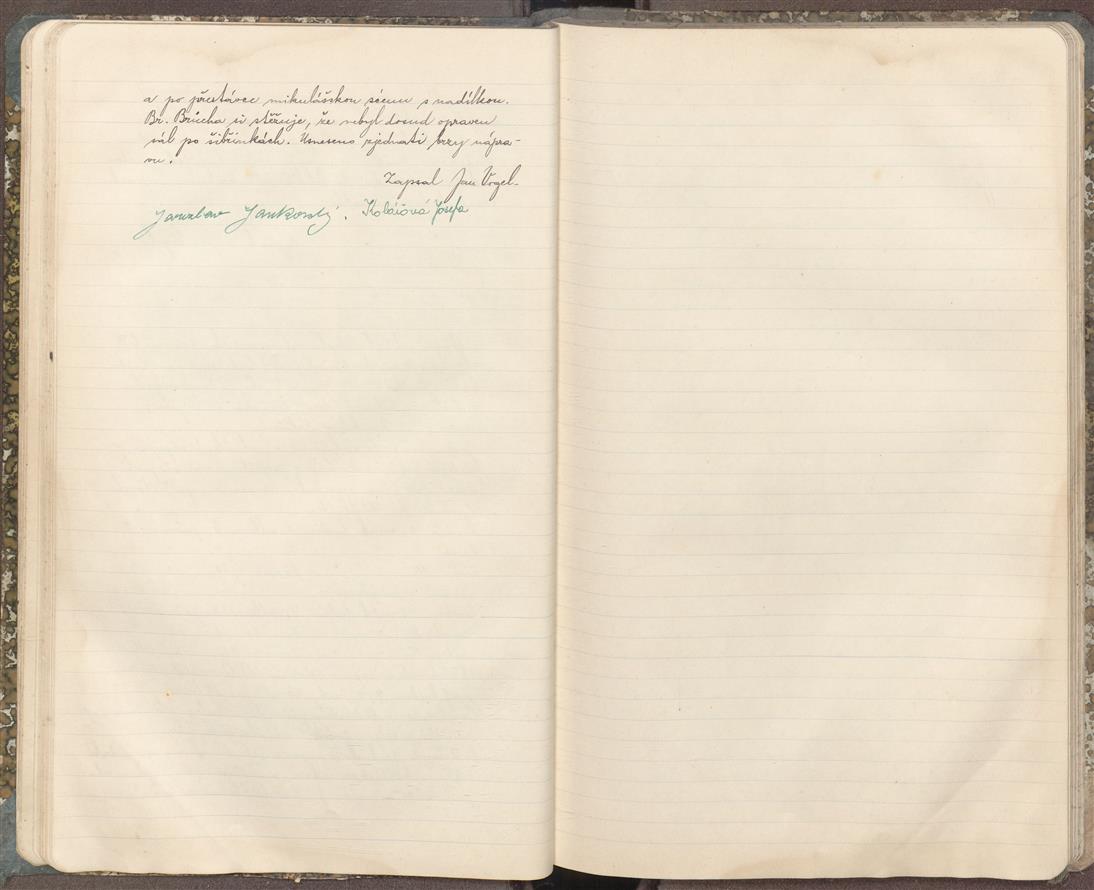 a po přestávce mikulášskou scenu s nadílkou.
Br. Brücha si stěžuje, že nebyl dosud opraven
sál po šibřinkách. Usneseno zjednati brzy nápra-
vu.
Zapsal Jan Vogel.
Jaroslav Jankovský. Kolářová Josefa